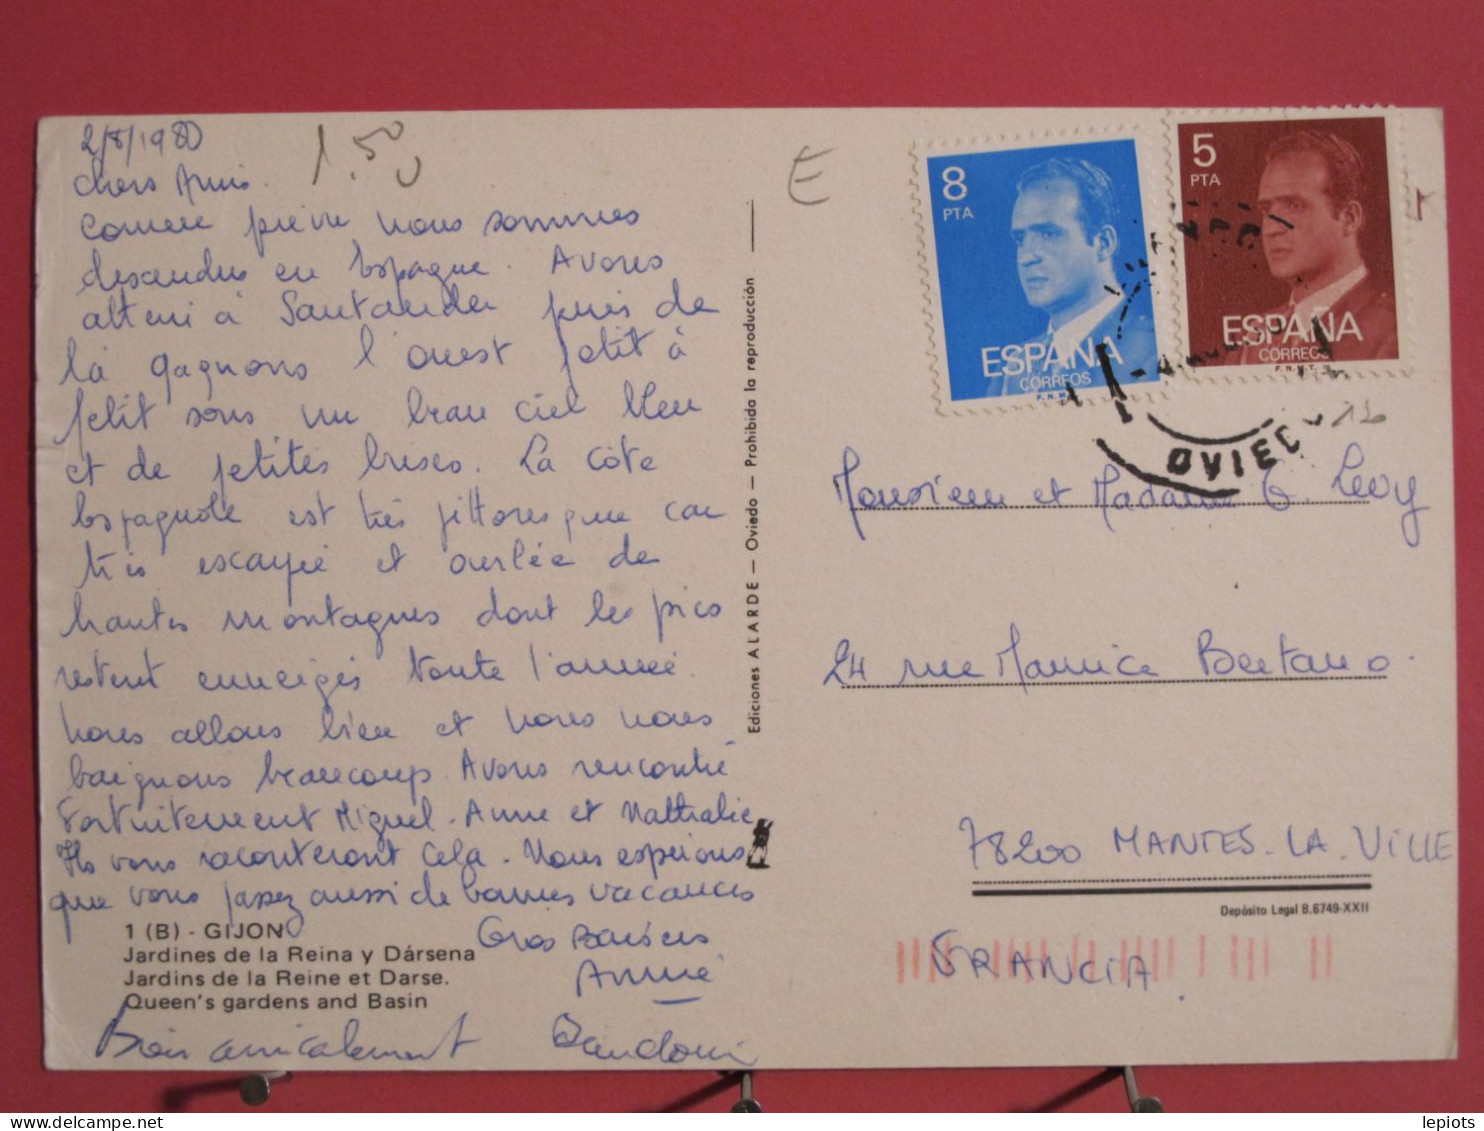 2/8/1980
1.50
Chers Amis.
Comme prévu nous sommes
descendus en Espagne. Avons
atteri à Santander puis de
là gagnons l'ouest petit à
petit sous un beau ciel bleu
et de petites brises. La côte
Espagnole est très pittoresque car
très escarpée et ourlée de
hautes montagnes dont les pics
restent enneigés toute l'année.
Nous allons bien et nous nous
baignons beaucoup. Avons rencontré
fortuitement Miguel. Anne et Nathalie
Ils vous raconteront cela. Nous espérons
que vous passez aussi de bonnes vacances
Gros Baisers
Annie
Bien amicalement Baudouin
1 (B) - GIJON
Jardines de la Reina y Dársena
Jardins de la Reine et Darse.
Queen's gardens and Basin
Ediciones ALARDE — Oviedo — Prohibida la reproducción
E
8
PTA
ESPAÑA
CORREOS
5
PTA
ESPAÑA
CORREOS
F.N.M.T.
OVIEDO
Monsieur et Madame G. Levy
24 rue Maurice Berteaux.
78200 MANTES-LA-VILLE
Depósito Legal B.6749-XXII
FRANCIA.
lepiots